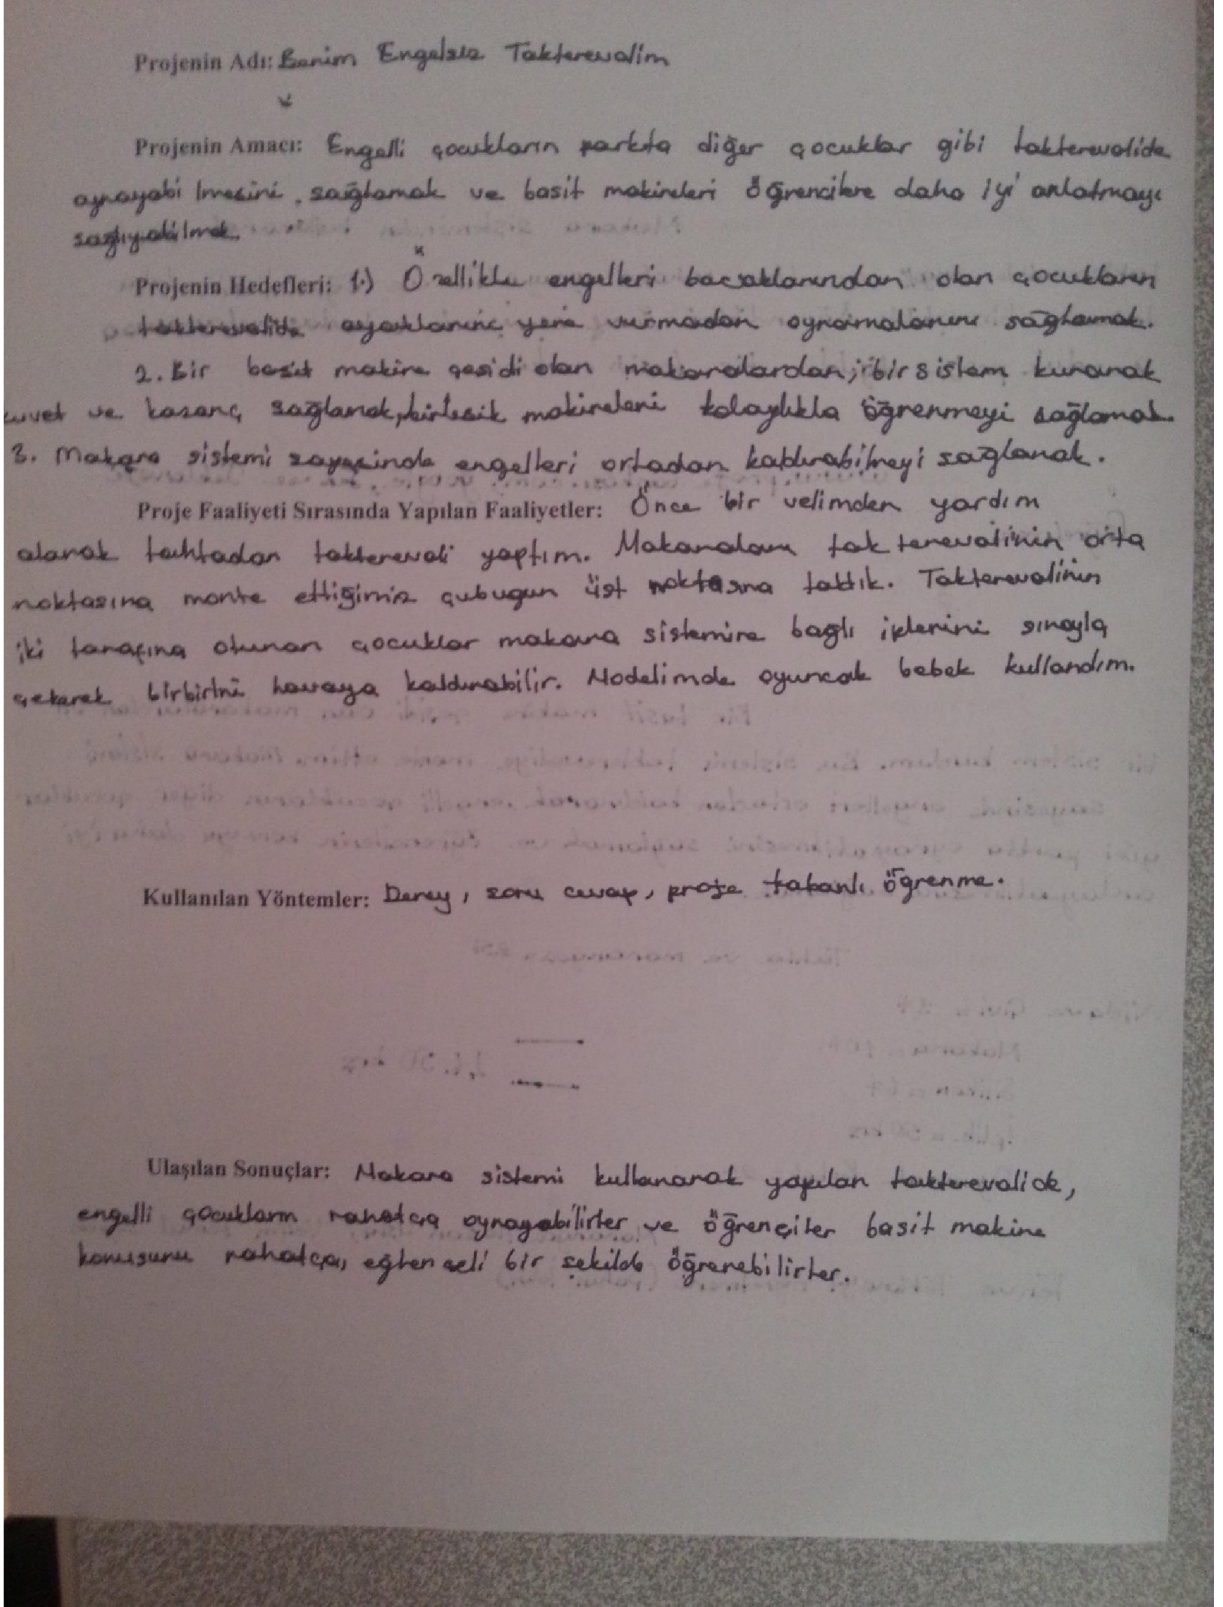 Projenin Adı: Benim Engelsiz Takterevalim
Projenin Amacı: Engelli çocukların parkta diğer çocuklar gibi takterevalide
oynayabilmesini, sağlamak ve basit makineleri öğrencilere daha iyi anlatmayı
sağlıyabilmek.
Projenin Hedefleri: 1.) Özellikle engelleri bacaklarından olan çocukların
takterevalide ayaklarını yere vurmadan oynamalarını sağlamak.
2. Bir basit makine çeşidi olan makaralardan, bir sistem kurarak
kuvvet ve kazanç sağlanak, birleşik makineleri kolaylıkla öğrenmeyi sağlamak.
3. Makara sistemi sayesinde engelleri ortadan kaldırabilmeyi sağlanak.
Proje Faaliyeti Sırasında Yapılan Faaliyetler: Önce bir velimden yardım
alarak tahtadan takterevali yaptım. Makaraları takterevalinin orta
noktasına monte ettiğimiz çubugun üst noktasına taktık. Takterevalinin
iki tarafına oturan çocuklar makara sistemine bağlı iplerini sırayla
çekerek birbirini havaya kaldırabilir. Modelimde oyuncak bebek kullandım.
Kullanılan Yöntemler: Deney, soru cevap, proje tabanlı öğrenme.
Ulaşılan Sonuçlar: Makara sistemi kullanarak yapılan takterevalide,
engelli çocukların rahatça oynayabilirler ve öğrençiler basit makine
konusunu rahatça, eğlenceli bir şekilde öğrenebilirler.